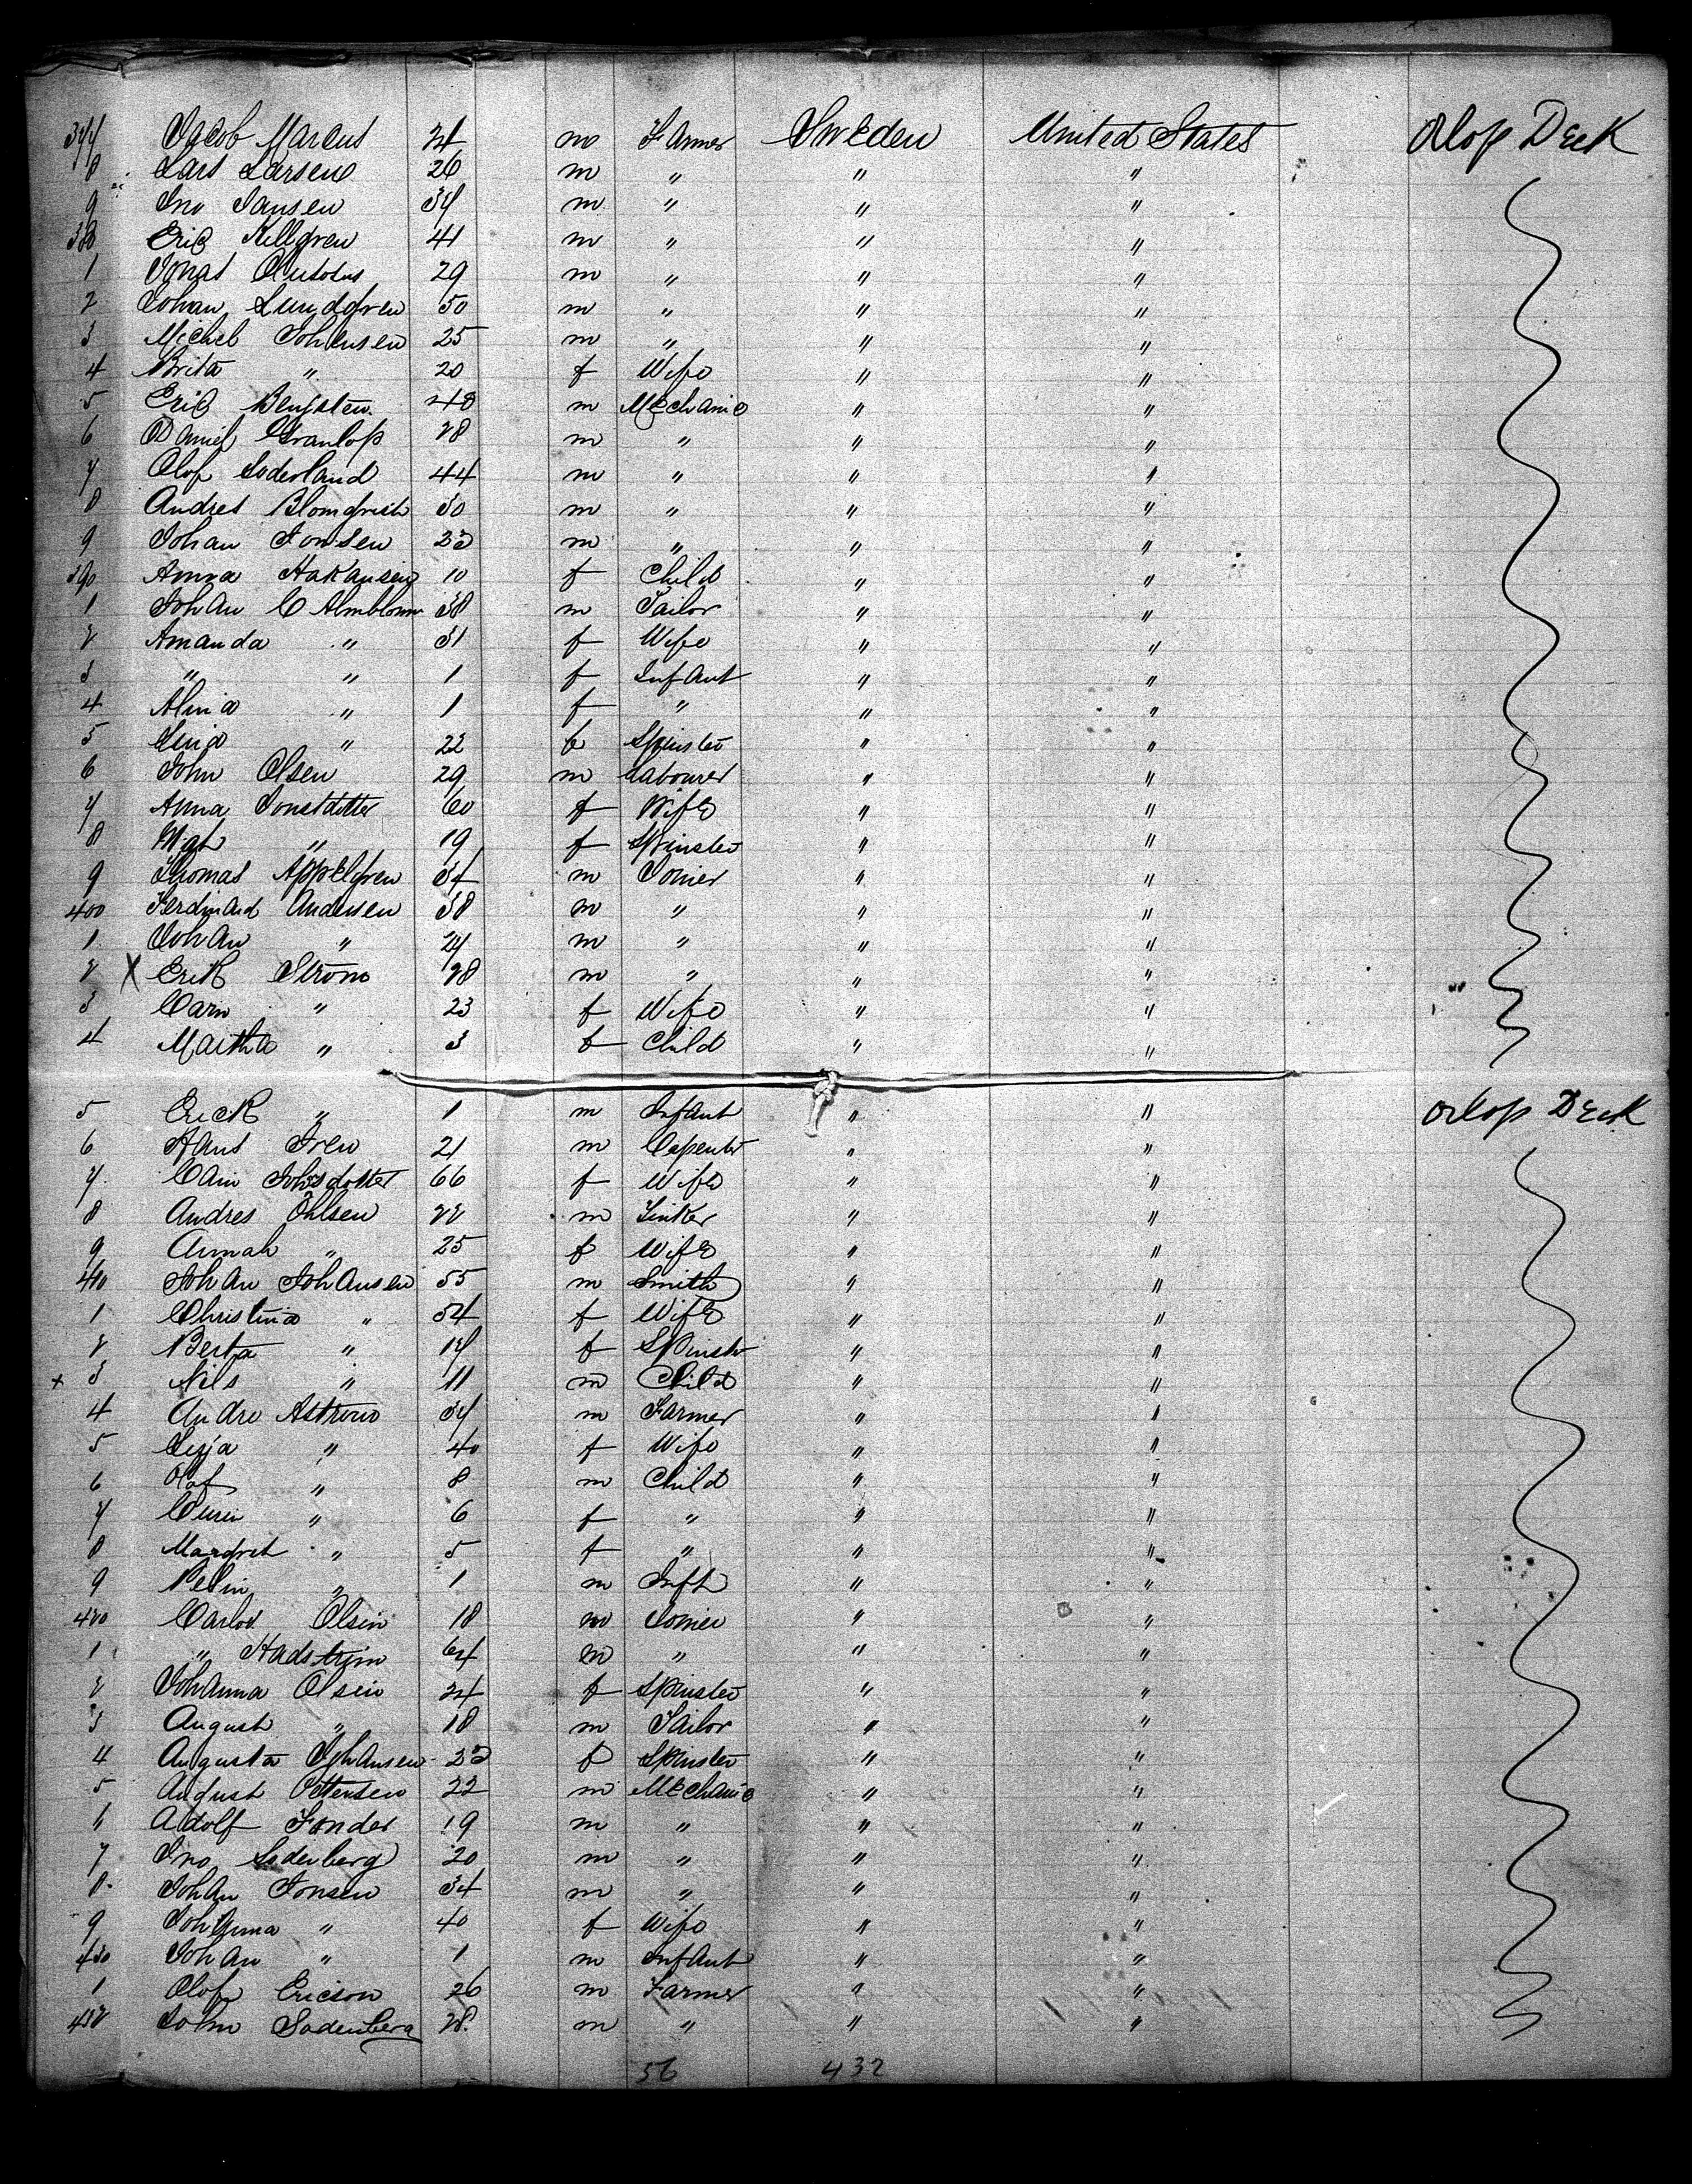 377 Jacob Marcus 24 m Farmer Sweden United States Orlop Deck
8 Lars Larsen 26 m " " "
9 Jno Jansen 37 m " " "
380 Eric Killgren 41 m " " "
1 Jonas 29 m " " "
2 Johan Lundgren 50 m " " "
3 Michel Johansen 25 m " " "
4 Brita " 20 f Wife " "
5 Eric Bengsten 48 m Mechanic " "
6 Daniel 28 m " " "
7 Olof Soderland 44 m " " "
8 Andres Blomqvist 30 m " " "
9 Johan Jonsen 22 m " " "
390 Anna Hakansen 10 f Child " "
1 Johan C Almblom 38 m Tailor " "
2 Amanda " 31 f Wife " "
3 " " 1 f Infant " "
4 Alma " 1 f " " "
5 Lina " 22 f Spinster " "
6 John Olsen 29 m Labourer " "
7 Anna Jonsdotter 60 f Wife " "
8 " 19 f Spinster " "
9 Thomas Appelgren 34 m Joiner " "
400 Ferdinand Andersen 38 m " " "
1 Johan " 27 m " " "
2 X Erik Strom 28 m " " "
3 Carn " 23 f Wife " "
4 Martha " 3 f Child " "
5 Erick " 1 m Infant " " Orlop Deck
6 Hans Fren 21 m Capenter " "
7 Cain Johsdotter 66 f Wife " "
8 Andres Öhlsen 22 m Tinker " "
9 Annah " 25 f Wife " "
410 Johan Johansen 55 m Smith " "
1 Christina " 54 f Wife " "
2 Berta " 17 f Spinster " "
x 3 Nils " 11 m Child " "
4 Andre Astrom 37 m Farmer " "
5 " 40 f Wife " "
6 Olof " 8 m Child " "
7 " 6 f " " "
8 Margret " 5 f " " "
9 " 1 m Inft " "
420 Carlos Olsen 18 m Joiner " "
1 " Hadstrom 64 m " " "
2 Johanna Olsen 24 f Spinster " "
3 August " 18 m Tailor " "
4 Augusta Johansen 22 f Spinster " "
5 August Ottersen 22 m Mechanic " "
6 Adolf Fonder 19 m " " "
7 Jno Soderberg 20 m " " "
8 Johan Jonsen 34 m " " "
9 Johanna " 40 f Wife " "
430 Johan " 1 m Infant " "
1 Olof Ericson 26 m Farmer " "
432 John Sodenberg 28 m " " "
56 432